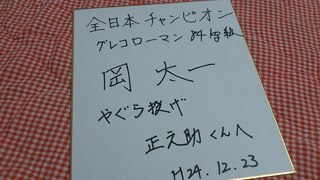 全日本チャンピオン
グレコローマン 84㌔級
岡 太一
やぐら投げ
正之助くんへ
H24.12.23